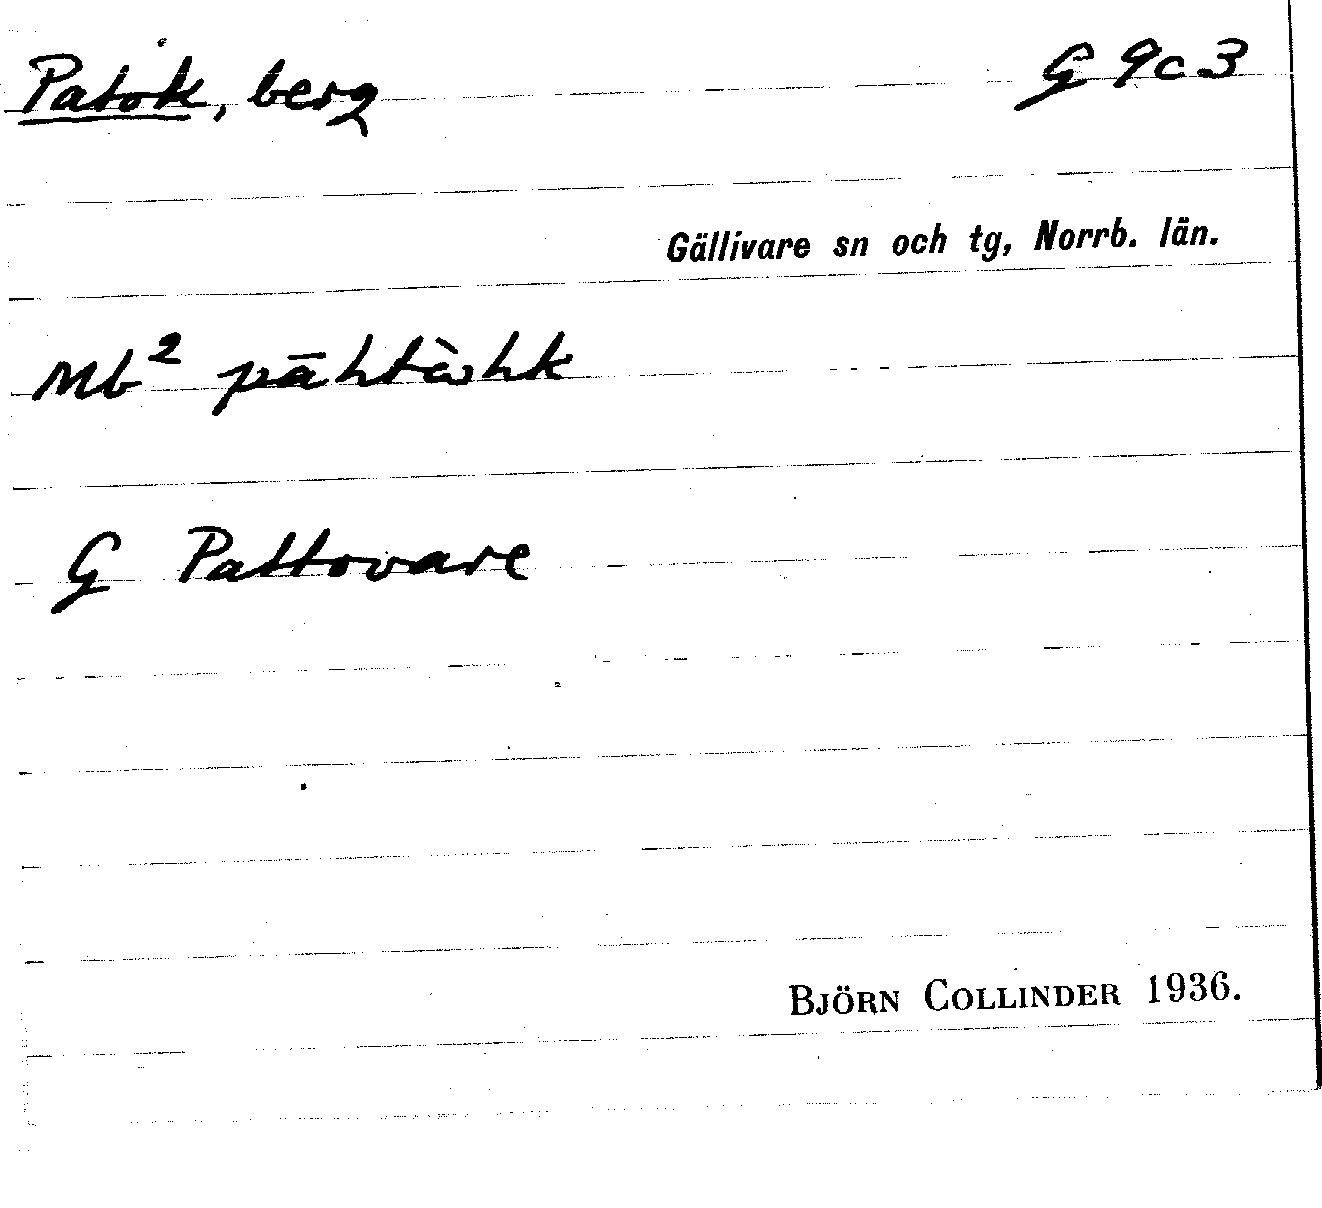 Patok, berg G 9c3
Gällivare sn och tg, Norrb. län.
Mb²
G Pattovare
BJÖRN COLLINDER 1936.